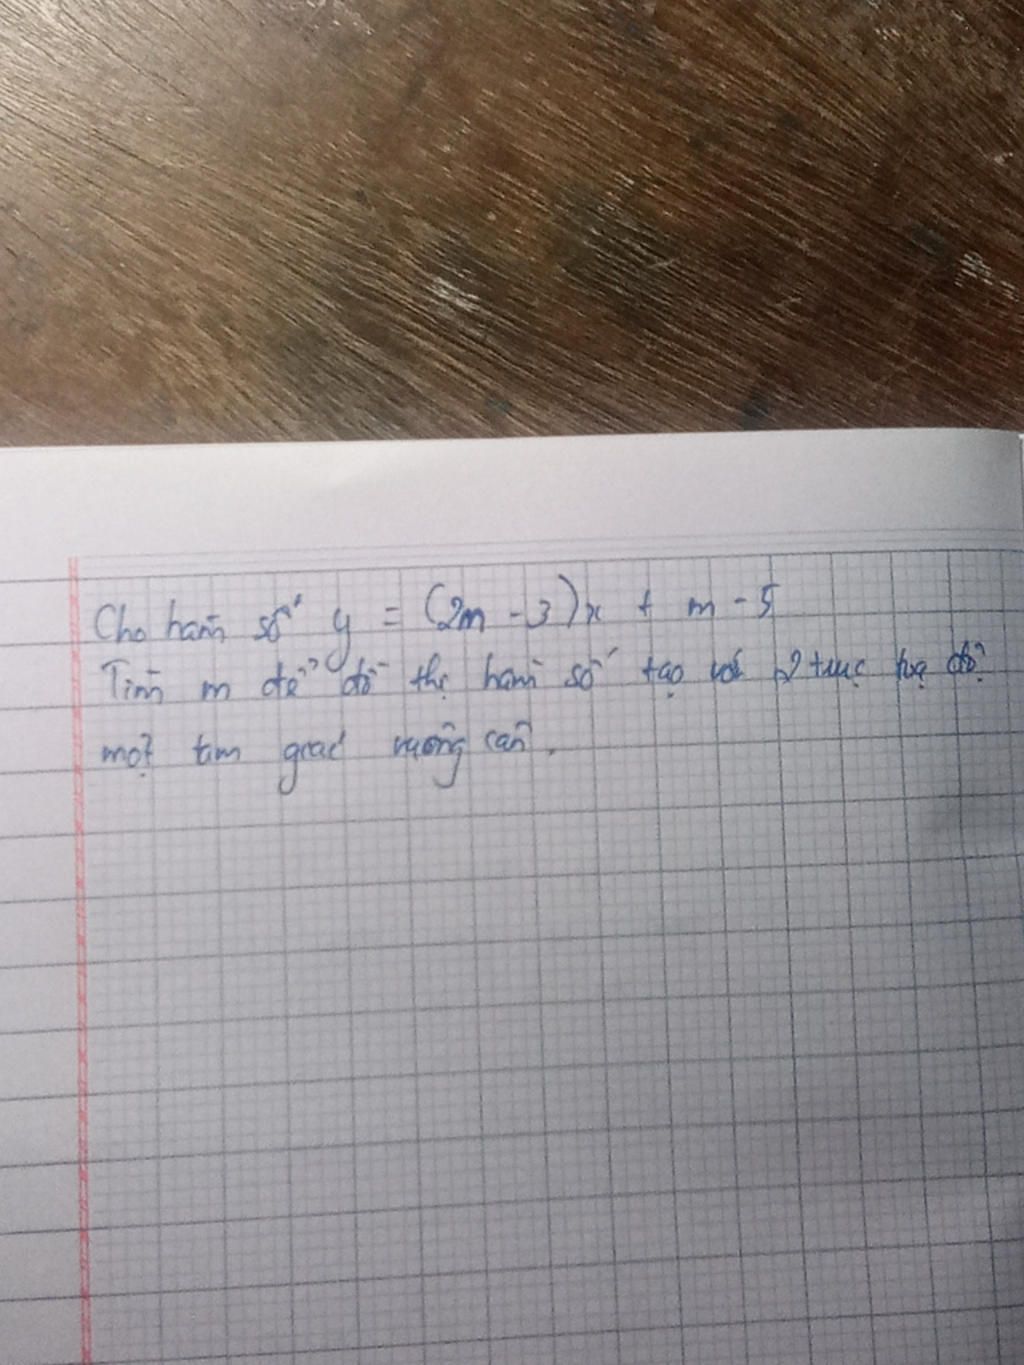 Cho hàm số y = (2m - 3)x + m - 5
Tìm m để đồ thị hàm số tạo với 2 trục toạ độ
một tam giác vuông cân.